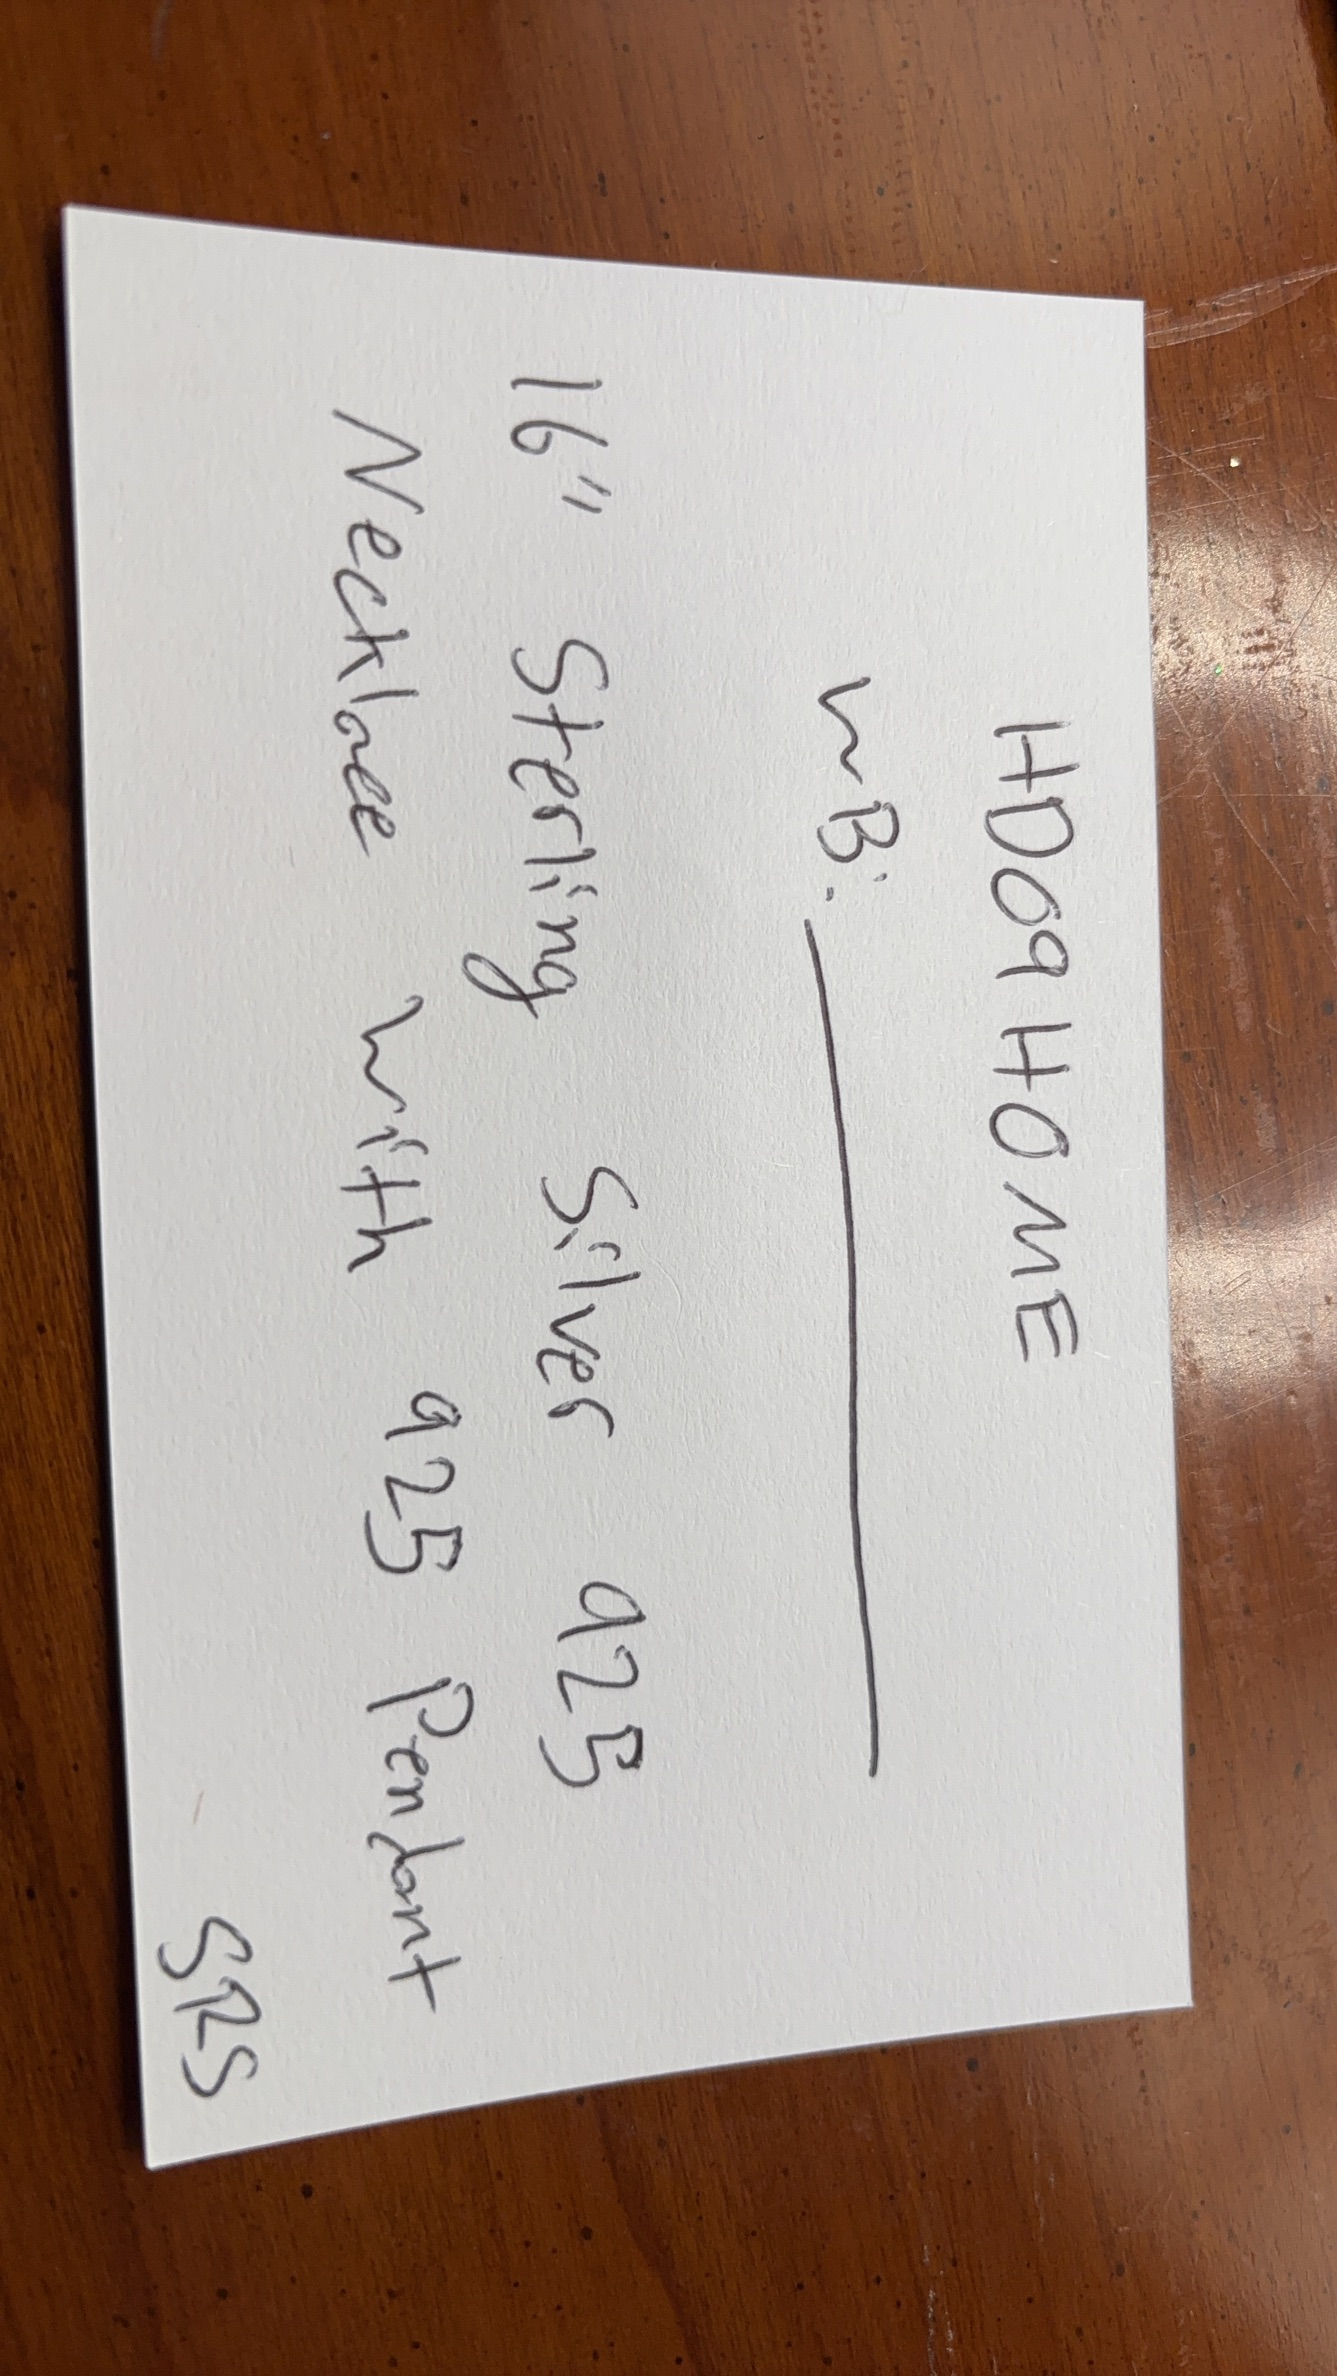 HD09HOME
WB:
16" Sterling Silver 925
Necklace with 925 Pendant
SRS